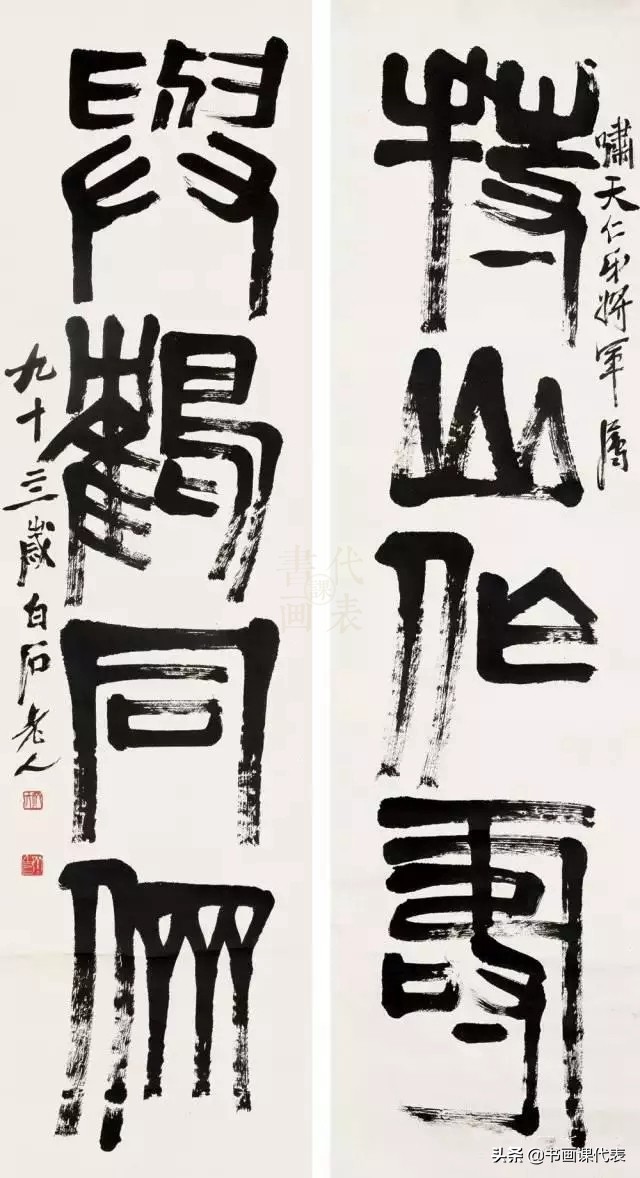 嘯天仁弟將軍屬
持山作壽
與鶴同儕
九十三歲白石老人
代表
課
書画
头条 @书画课代表